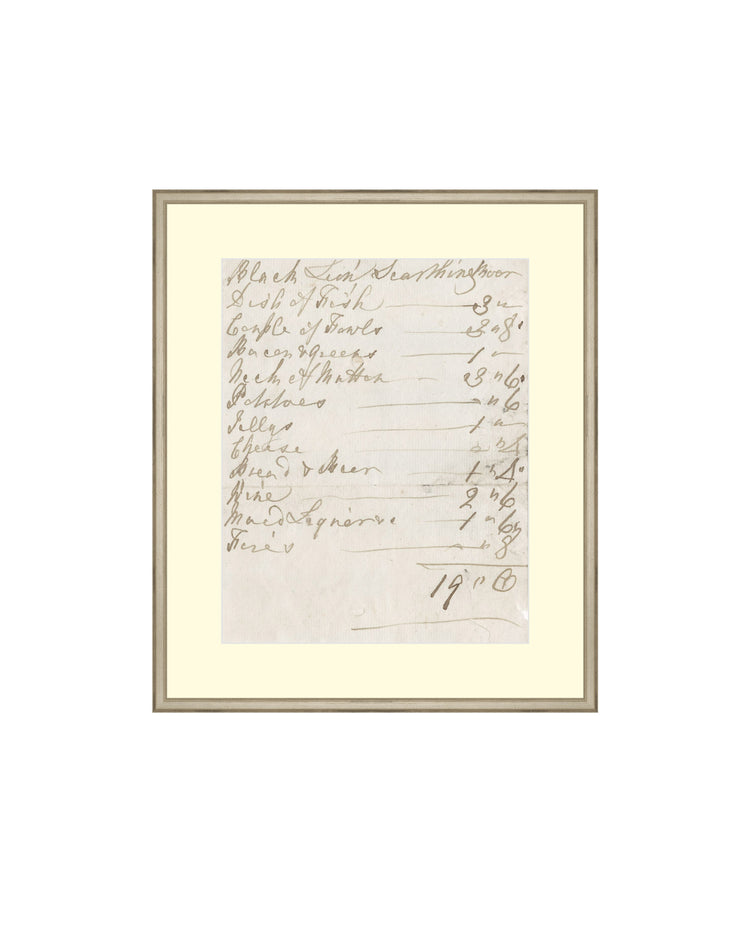 Black Lion Scarthingmoor
Dish of Fish 3 " -
Couple of Fowls 3 " 8
Bacon & greens 1 " -
Neck of Mutton 3 " 6
Potatoes - " 6
Jellys 1 " -
Cheese - " 4
Bread & Beer 1 " 4
Wine 2 " 6
Maid Liquer &c 1 " 6
Fires - " 8
19 " 0